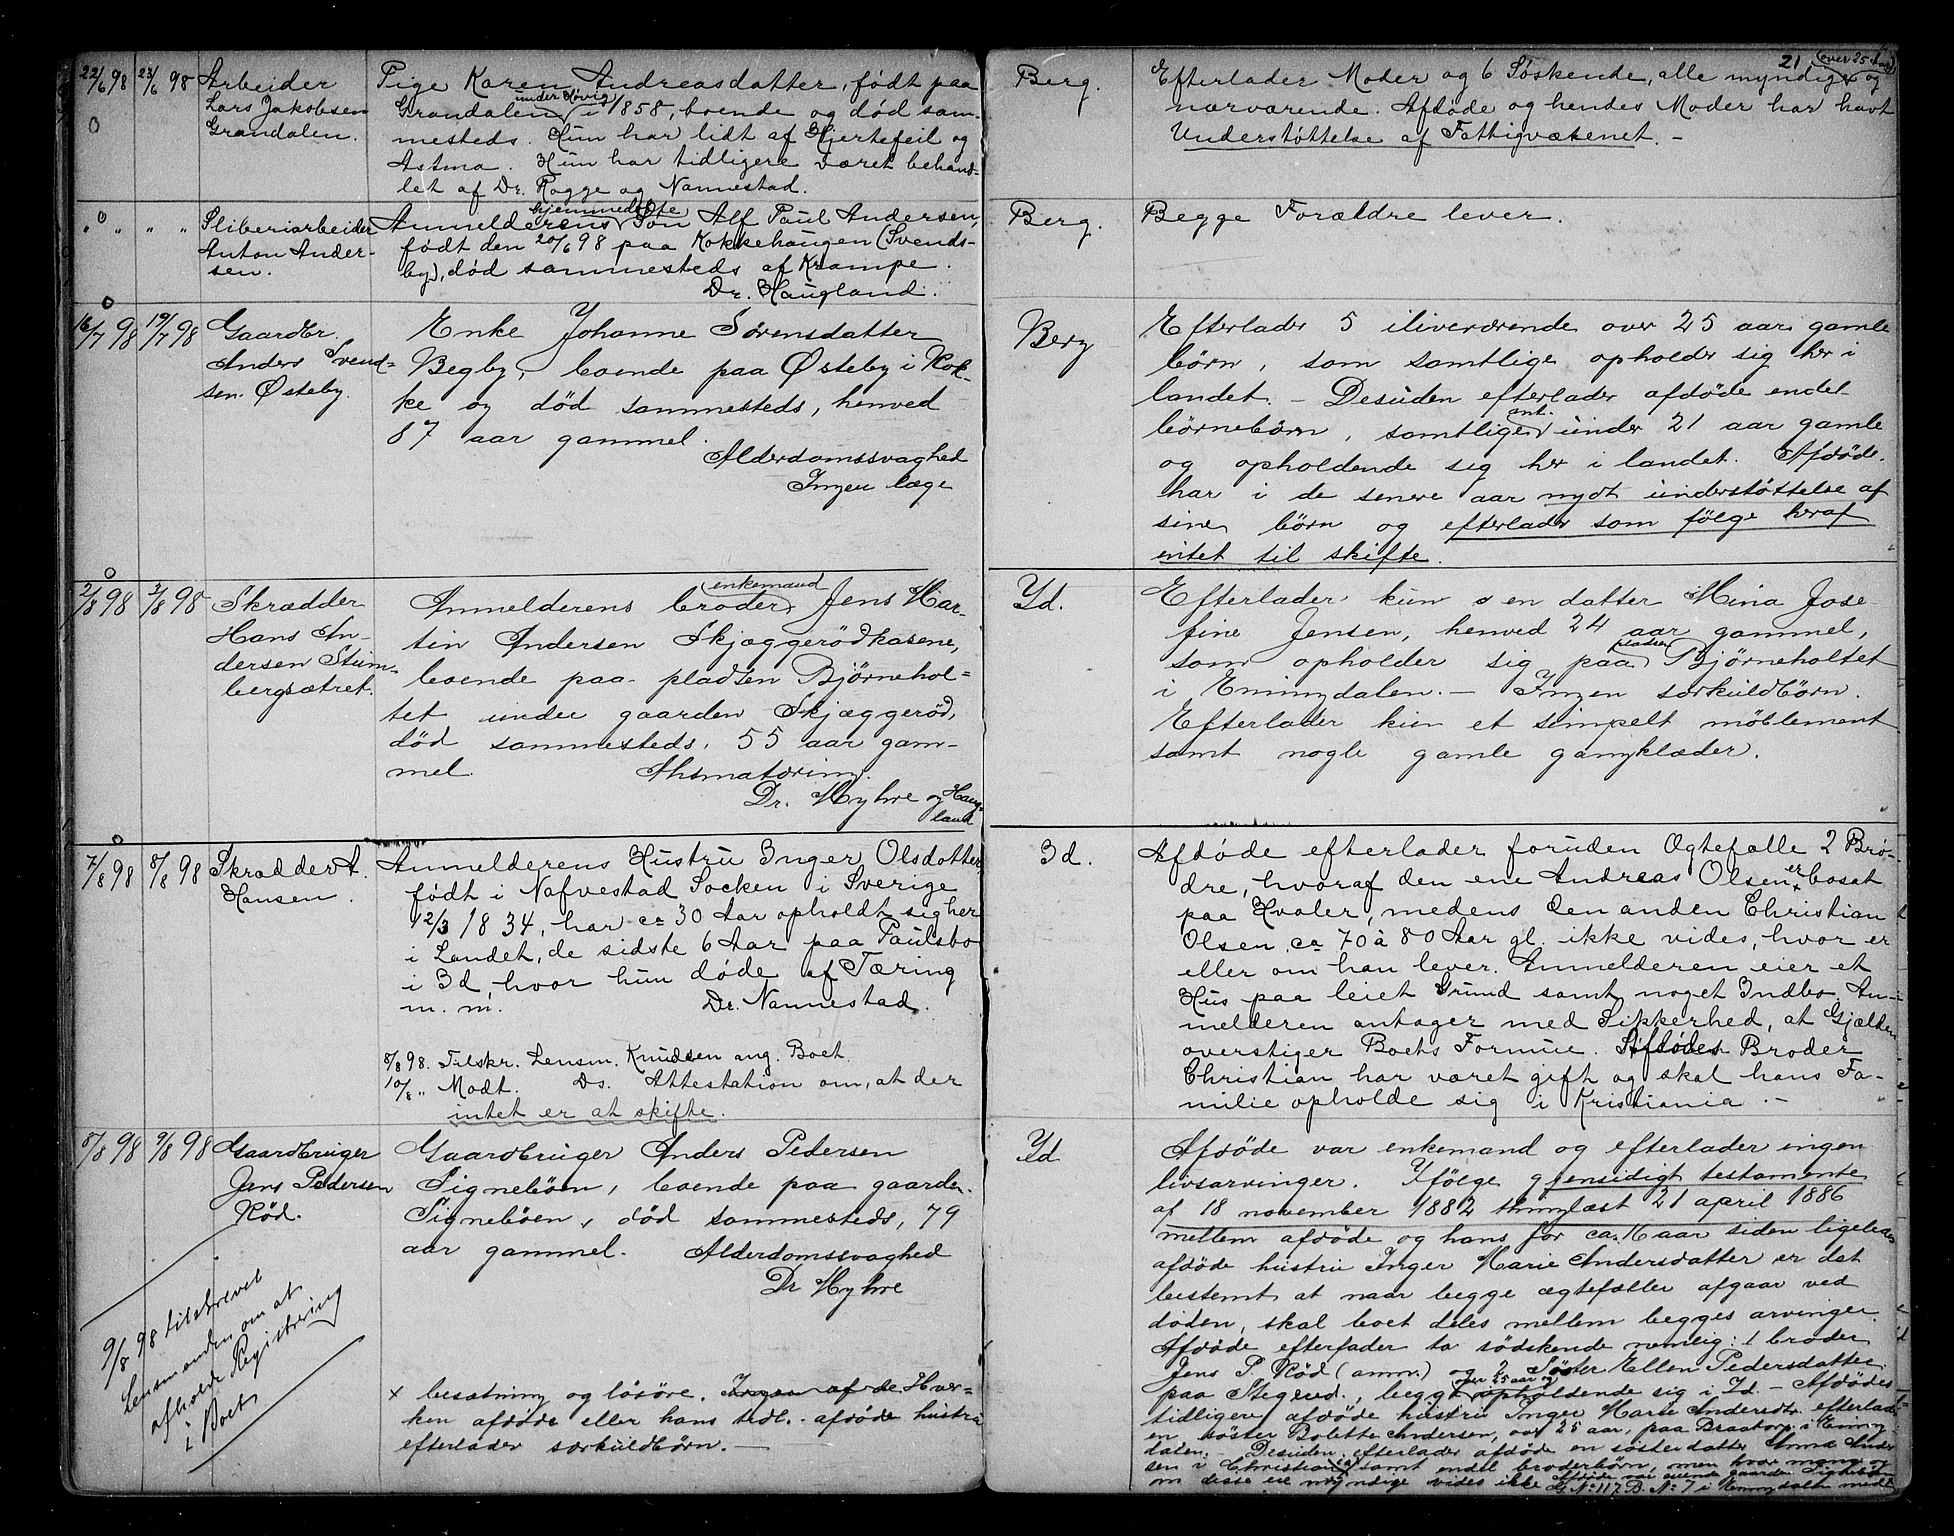 21
22/6 98
23/6 98
Arbeider
Lars Jakobsen
Grandalen.
Pige Karen Andreasdatter, født paa
Grandalen under Høvig i 1858, boende og død sam-
mesteds. Hun har lidt af Hjertefeil og
Astma. Hun har tidligere været behand-
let af Dr. Rogge og Nannestad.
Berg.
Efterlader Moder og 6 Søskende, alle myndige (over 25 Aar) og
nærværende. Afdøde og hendes Moder har havt
Understøttelse af Fattigvæsenet. -
" " " "
Sliberiarbeider
Anton Ander-
sen.
Anmelderens hjemmedøbte Søn Alf Paul Andersen,
født den 20/6 98 paa Kokkehaugen (Svends-
by), død sammesteds af Krampe.
Dr. Haugland.
Berg.
Begge Forældre lever.
16/7 98
19/7 98
Gaardbr.
Anders Svend-
sen Østeby.
Enke Johanne Sørensdatter
Begby, boende paa Østeby i Rok-
ke og død sammesteds, henved
87 aar gammel.
Alderdomssvaghed
Ingen læge
Berg
Efterlader 5 iliveværende over 25 aar gamle
børn, som samtlige opholder sig her i
landet. - Desuden efterlader afdøde endel
børnebørn, samtlige ant. under 21 aar gamle
og opholdende sig her i landet. Afdøde
har i de senere aar nydt understøttelse af
sine børn og efterlader som følge heraf
intet til skifte.
2/8 98
3/8 98
Skrædder
Hans An-
dersen Stum-
bergsætret.
Anmelderens broder, enkemand Jens Mar-
tin Andersen Skjæggerødkasene,
boende paa pladsen Bjørnehol-
tet under gaarden Skjæggerød,
død sammesteds, 55 aar gam-
mel.
Dr. Myhre og Haug-
land
Yd.
Efterlader kun en datter Mina Jose-
fine Jensen, henved 24 aar gammel,
som opholder sig paa pladsen Bjørneholtet
i Enningdalen. - Ingen særkuldbørn.
Efterlader kun et simpelt møblement
samt nogle gamle gangklæder.
7/8 98
8/8 98
Skrædder A.
Hansen.
Anmelderens Hustru Inger Olsdatter,
født i Nafvestad Socken i Sverige
12/3 1834, har ca 30 Aar opholdt sig her
i Landet, de sidste 6 Aar paa Paulsbo
i Id, hvor hun døde af Tæring
m. m.
Dr. Nannestad.
8/8 98. Tilskr. Lensm. Knudsen ang. Boet.
10/8 " Modt. Ds. Attestation om, at der
intet er at skifte.
Id.
Afdøde efterlader foruden Ægtefælle 2 Brø-
dre, hvoraf den ene Andreas Olsen er bosat
paa Hvaler, medens den anden Christian
Olsen ca 70 à 80 Aar gl. ikke vides, hvor er
eller om han lever. Anmelderen eier et
Hus paa leiet Grund samt noget Indbo. An-
melderen antager med Sikkerhed, at Gjælden
overstiger Boets Formue. Afdødes Broder
Christian har været gift og skal hans Fa-
milie opholde sig i Kristiania. -
8/8 98
9/8 98
Gaardbruger
Jens Pedersen
Rød.
Gaardbruger Anders Pedersen
Signebøen, boende paa gaarden
Signebøen, død sammesteds, 79
aar gammel. Alderdomssvaghed
Dr Myhre
9/8 98 tilskrevet
Lensmanden om at
afholde Registrering
i Boet
x besætning og løsøre. Ingen af de Hver-
ken afdøde eller hans tidl. afdøde hustru
efterlader særkuldbørn. -
Yd
Afdøde var enkemand og efterlader ingen
livsarvinger. Ifølge gjensidigt testamente
af 18 november 1882 thinglæst 21 april 1886
mellem afdøde og hans for ca. 16 aar siden ligeledes
afdøde hustru Inger Marie Andersdatter er det
bestemt at naar begge ægtefæller afgaar ved
døden, skal boet deles mellem begges arvinger.
Afdøde efterlader to sødskende nemlig: 1 broder
Jens P. Rød (anm.) og 2 Søster Ellen Pedersdatter
paa Stegerød, begge over 25 aar og opholdende sig i Id. - Afdødes
tidligere afdøde hustru Inger Marie Andersdtr. efterlader
en søster Bolette Andersen, over 25 aar, paa Braatorp i Enning-
dalen. - Desuden efterlader afdøde en søsterdatter Anna Ander-
sen i Christiania samt endel broderbørn, men hvor mange og
om disse ere myndige vides ikke. Afdøde var eiende gaarden Signebøen
G. No 117 B. No 7 i Enningdalen med